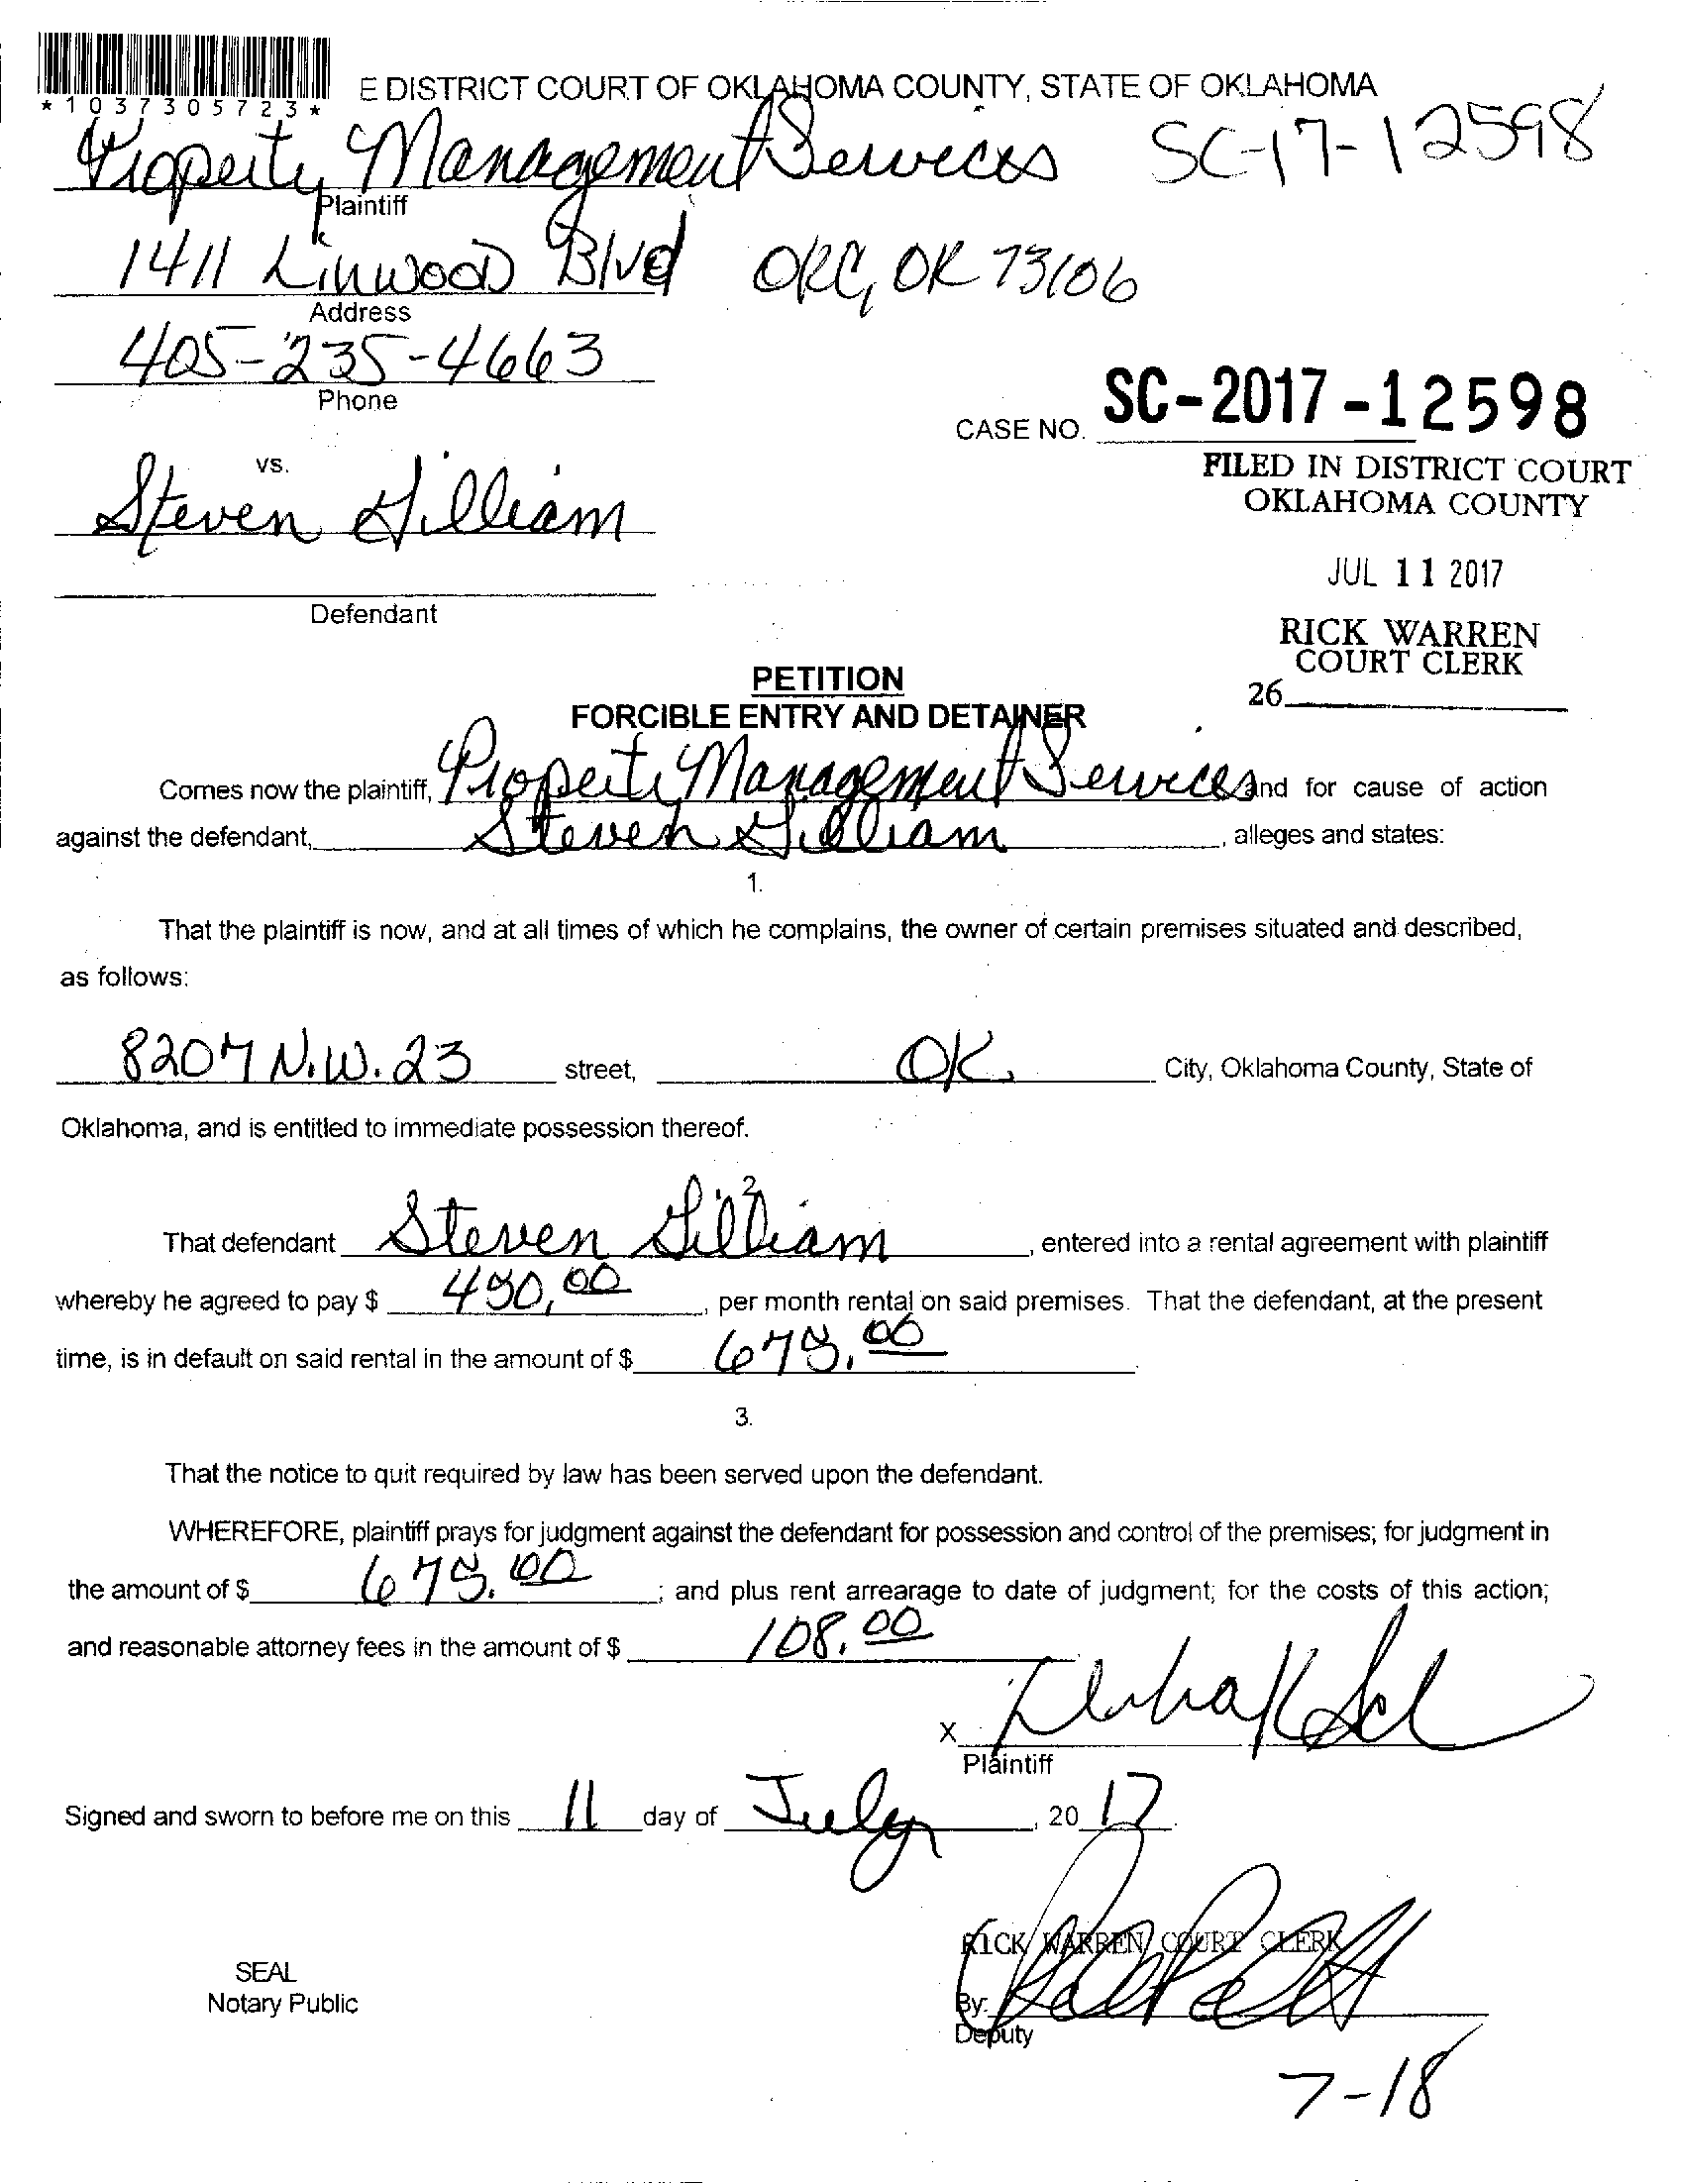 *1037305723*
E DISTRICT COURT OF OKLAHOMA COUNTY, STATE OF OKLAHOMA
Property Management Services SC-17-12598
Plaintiff
1411 Linwood Blvd OKC, OK 73106
Address
405-235-4663
Phone
CASE NO. SC-2017-12598
vs.
FILED IN DISTRICT COURT
OKLAHOMA COUNTY
Steven Gilliam
JUL 11 2017
Defendant
RICK WARREN
COURT CLERK
26
PETITION
FORCIBLE ENTRY AND DETAINER
Comes now the plaintiff, Property Management Services and for cause of action
against the defendant, Steven Gilliam, alleges and states:
1.
That the plaintiff is now, and at all times of which he complains, the owner of certain premises situated and described,
as follows:
8207 N.W. 23 street, OK. City, Oklahoma County, State of
Oklahoma, and is entitled to immediate possession thereof.
2.
That defendant Steven Gilliam, entered into a rental agreement with plaintiff
whereby he agreed to pay $ .00, per month rental on said premises. That the defendant, at the present
time, is in default on said rental in the amount of $ 675.00
3.
That the notice to quit required by law has been served upon the defendant.
WHEREFORE, plaintiff prays for judgment against the defendant for possession and control of the premises; for judgment in
the amount of $ 675.00; and plus rent arrearage to date of judgment; for the costs of this action;
and reasonable attorney fees in the amount of $ 108.00
X
Plaintiff
Signed and sworn to before me on this 11 day of July, 2017.
RICK WARREN, COURT CLERK
SEAL
Notary Public
By:
Deputy
7-18